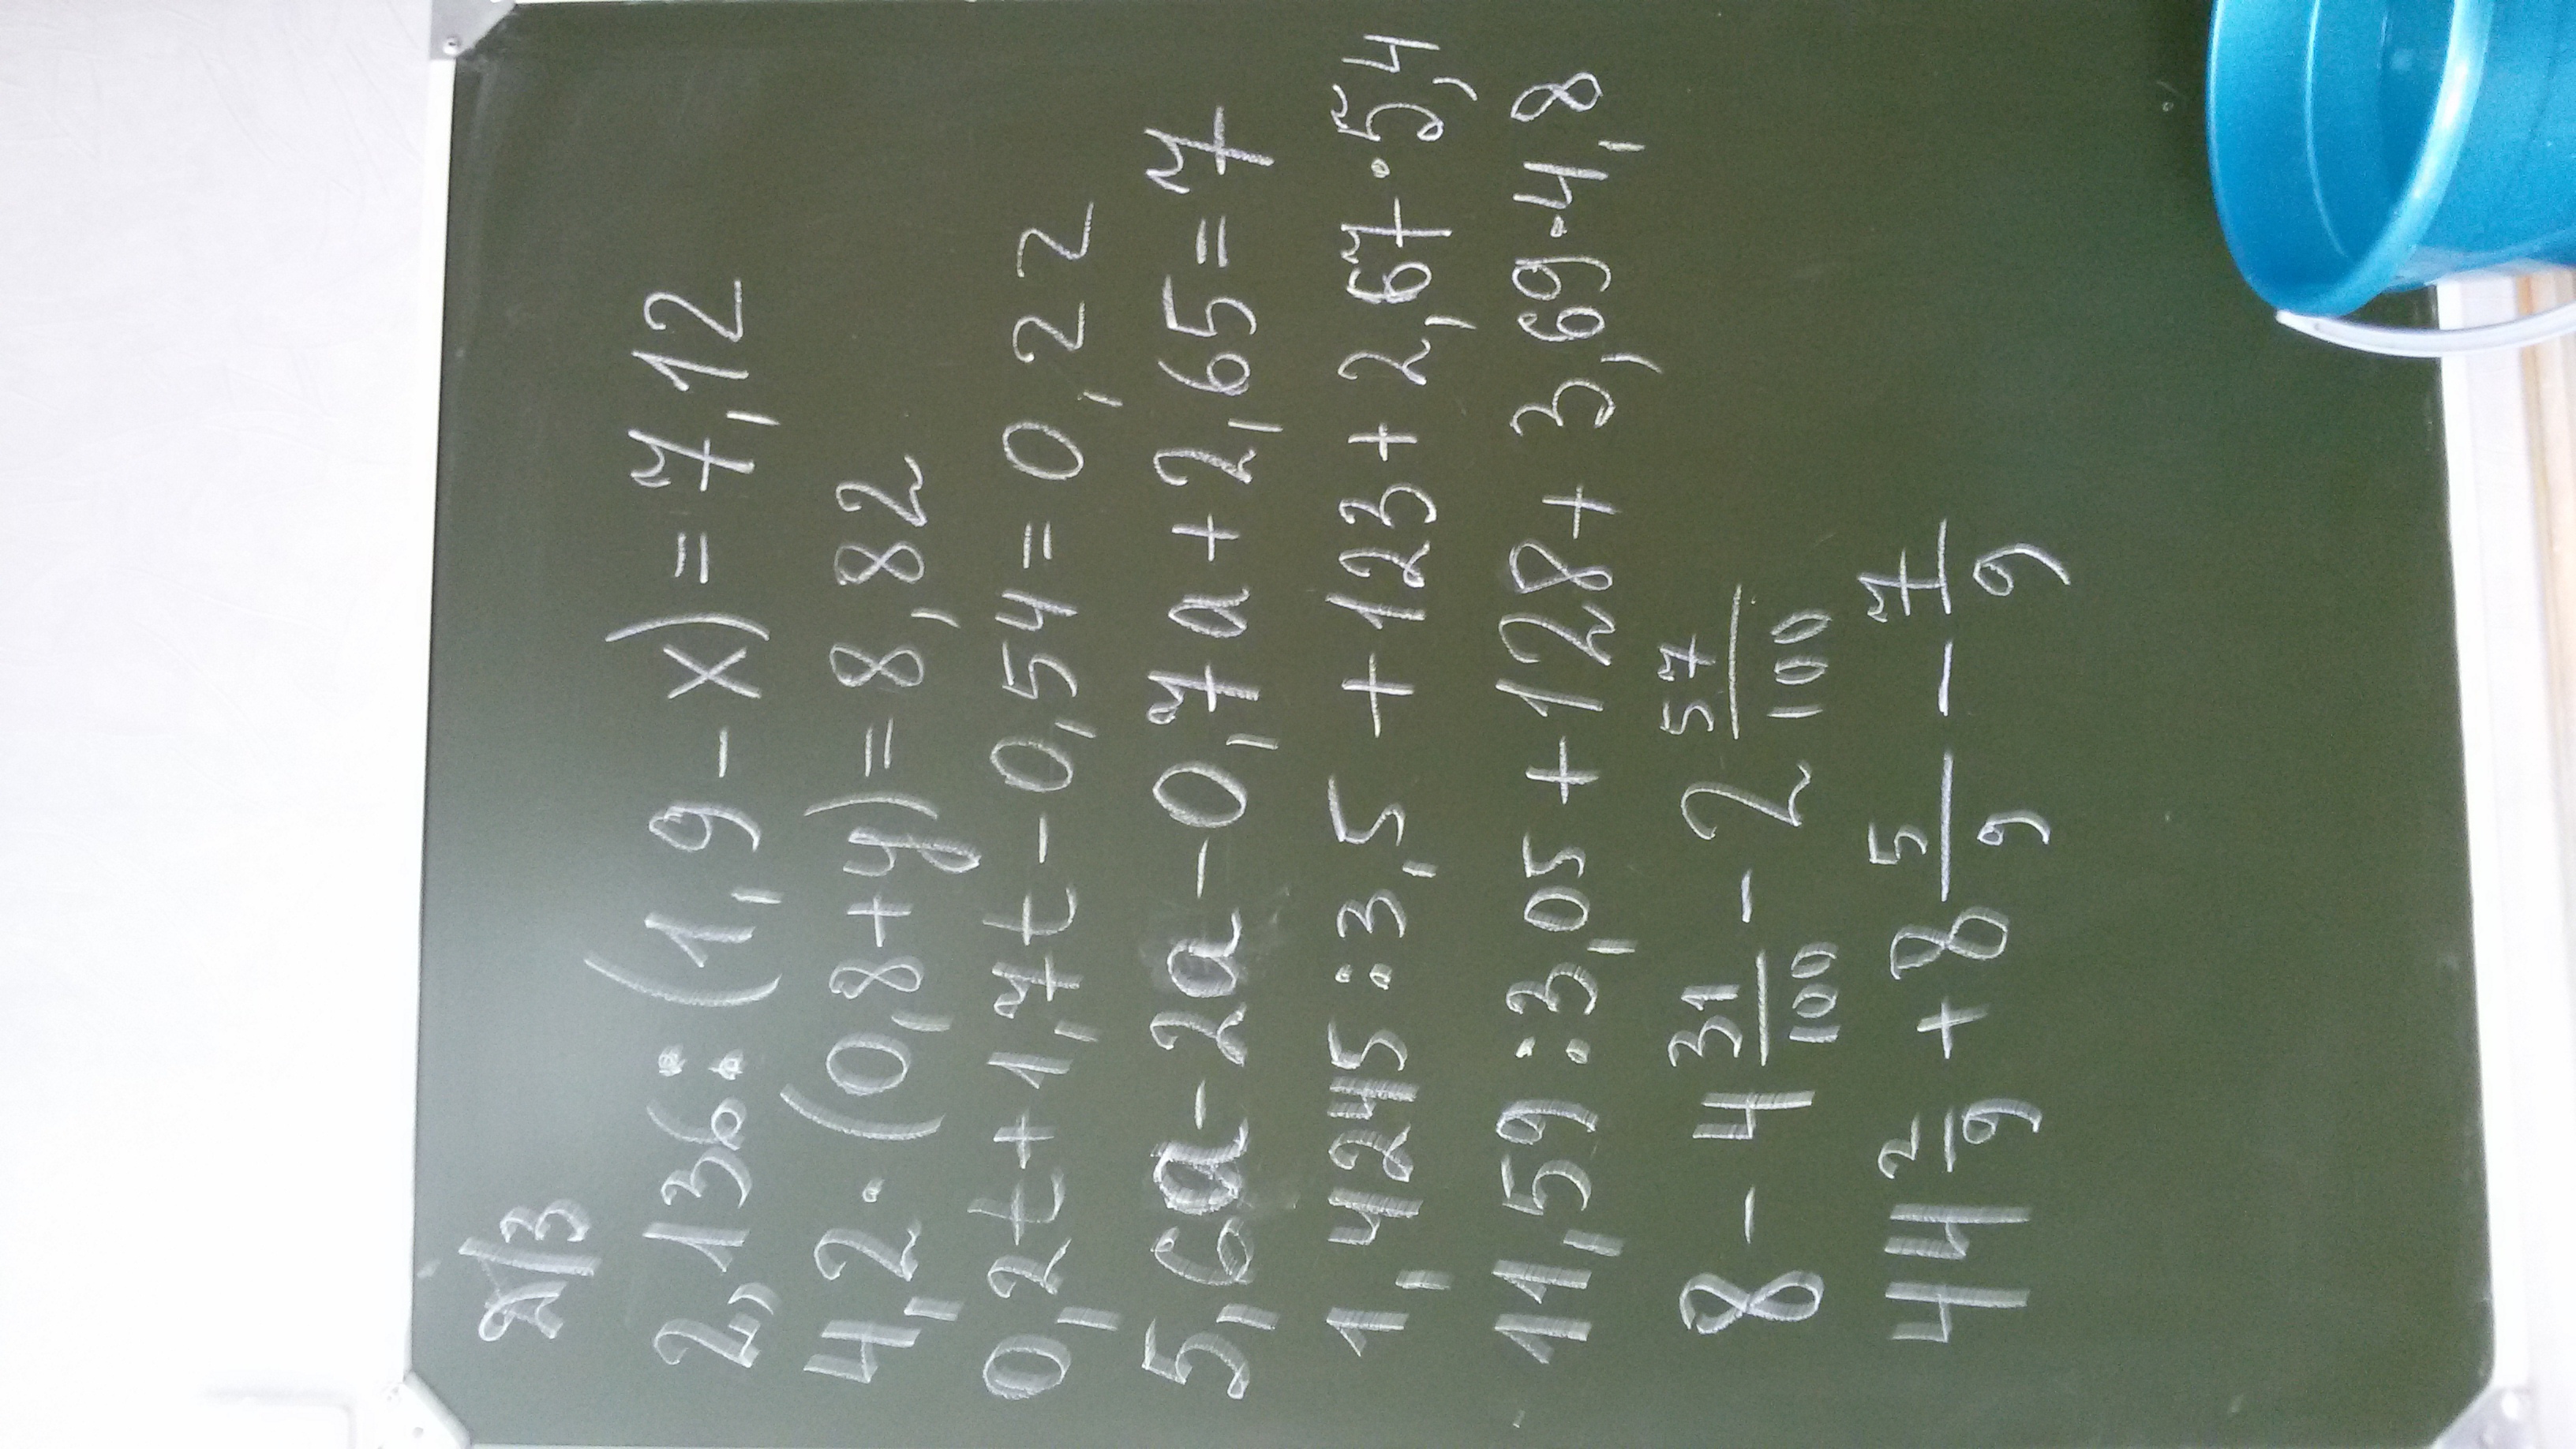 д/з
2,136:(1,9-x)=7,12
4,2·(0,8+y)=8,82
0,2t+1,7t-0,54=0,22
5,6a-2a-0,7a+2,65=7
1,4245:3,5+123+2,67·5,4
11,59:3,05+128+3,69·4,8
8-4 31/100-2 57/100
44 2/9+8 5/9-7/9